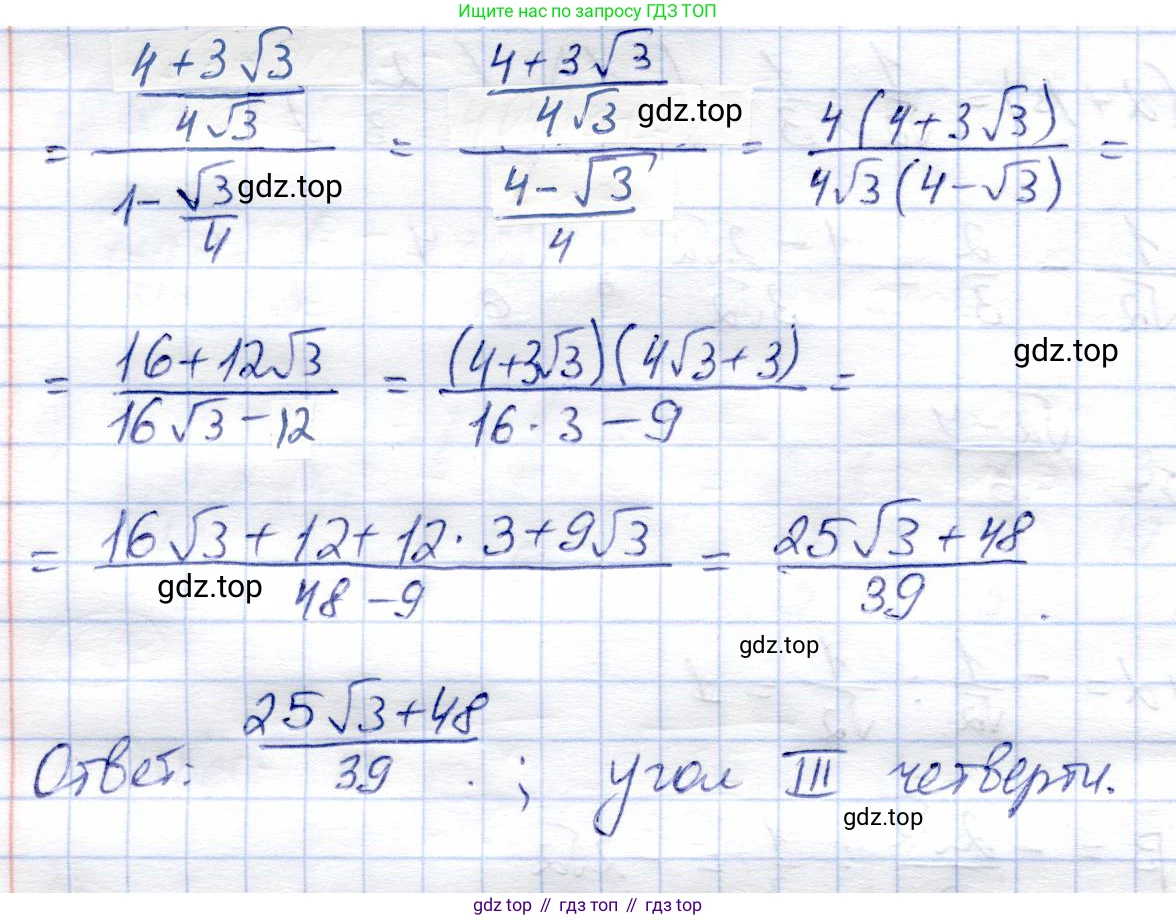 Ищите нас по запросу ГДЗ ТОП
= \frac{\frac{4+3\sqrt{3}}{4\sqrt{3}}}{1-\frac{\sqrt{3}}{4}} = \frac{\frac{4+3\sqrt{3}}{4\sqrt{3}}}{\frac{4-\sqrt{3}}{4}} = \frac{4(4+3\sqrt{3})}{4\sqrt{3}(4-\sqrt{3})} =
gdz.top
gdz.top
= \frac{16+12\sqrt{3}}{16\sqrt{3}-12} = \frac{(4+3\sqrt{3})(4\sqrt{3}+3)}{16 \cdot 3-9} =
gdz.top
= \frac{16\sqrt{3}+12+12 \cdot 3+9\sqrt{3}}{48-9} = \frac{25\sqrt{3}+48}{39}.
gdz.top
gdz.top
Ответ: \frac{25\sqrt{3}+48}{39}. ; угол III четверти.
gdz.top
gdz top // гдз топ // гдз top